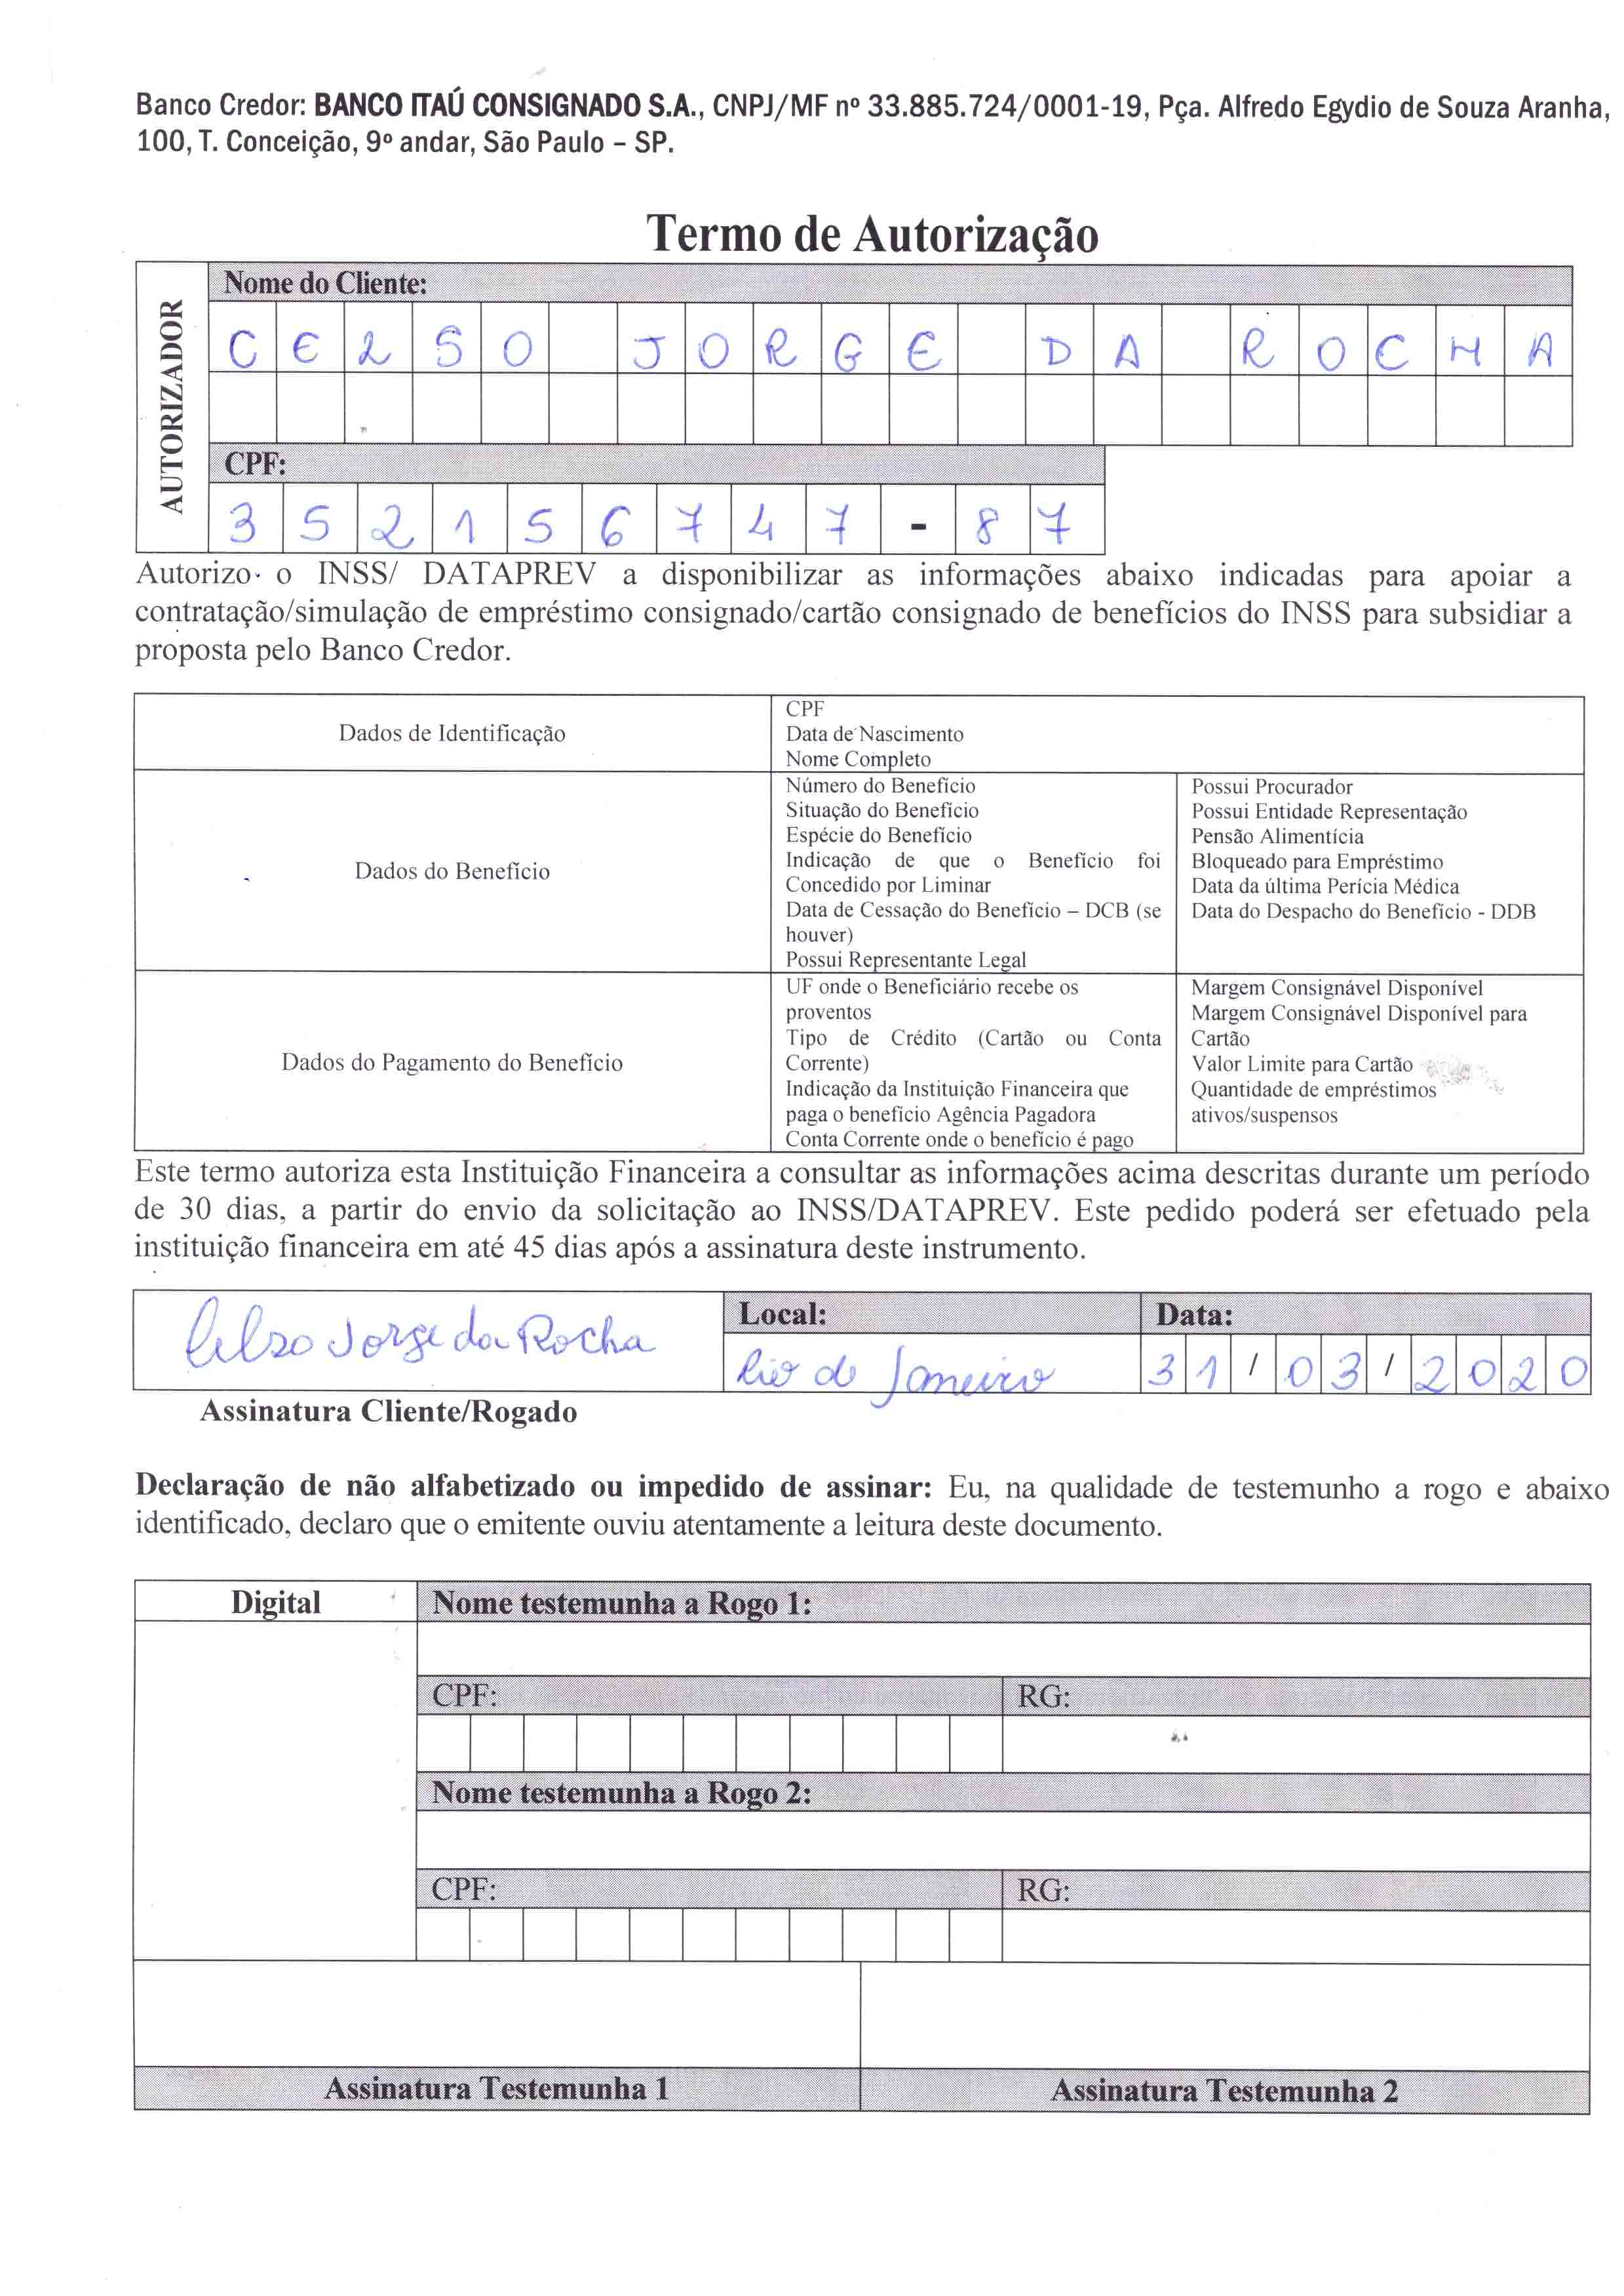 Banco Credor: BANCO ITAÚ CONSIGNADO S.A., CNPJ/MF nº 33.885.724/0001-19, Pça. Alfredo Egydio de Souza Aranha,
100, T. Conceição, 9º andar, São Paulo – SP.
Termo de Autorização
AUTORIZADOR
Nome do Cliente:
CELSO JORGE DA ROCHA
CPF:
352156747-87
Autorizo o INSS/ DATAPREV a disponibilizar as informações abaixo indicadas para apoiar a
contratação/simulação de empréstimo consignado/cartão consignado de benefícios do INSS para subsidiar a
proposta pelo Banco Credor.
Dados de Identificação
CPF
Data de Nascimento
Nome Completo
Dados do Benefício
Número do Benefício
Situação do Benefício
Espécie do Benefício
Indicação de que o Benefício foi
Concedido por Liminar
Data de Cessação do Benefício – DCB (se
houver)
Possui Representante Legal
Possui Procurador
Possui Entidade Representação
Pensão Alimentícia
Bloqueado para Empréstimo
Data da última Perícia Médica
Data do Despacho do Benefício - DDB
Dados do Pagamento do Benefício
UF onde o Beneficiário recebe os
proventos
Tipo de Crédito (Cartão ou Conta
Corrente)
Indicação da Instituição Financeira que
paga o benefício Agência Pagadora
Conta Corrente onde o benefício é pago
Margem Consignável Disponível
Margem Consignável Disponível para
Cartão
Valor Limite para Cartão
Quantidade de empréstimos
ativos/suspensos
Este termo autoriza esta Instituição Financeira a consultar as informações acima descritas durante um período
de 30 dias, a partir do envio da solicitação ao INSS/DATAPREV. Este pedido poderá ser efetuado pela
instituição financeira em até 45 dias após a assinatura deste instrumento.
Celso Jorge da Rocha
Local:
Rio de Janeiro
Data:
31/03/2020
Assinatura Cliente/Rogado
Declaração de não alfabetizado ou impedido de assinar: Eu, na qualidade de testemunho a rogo e abaixo
identificado, declaro que o emitente ouviu atentamente a leitura deste documento.
Digital
Nome testemunha a Rogo 1:
CPF:
RG:
Nome testemunha a Rogo 2:
CPF:
RG:
Assinatura Testemunha 1
Assinatura Testemunha 2